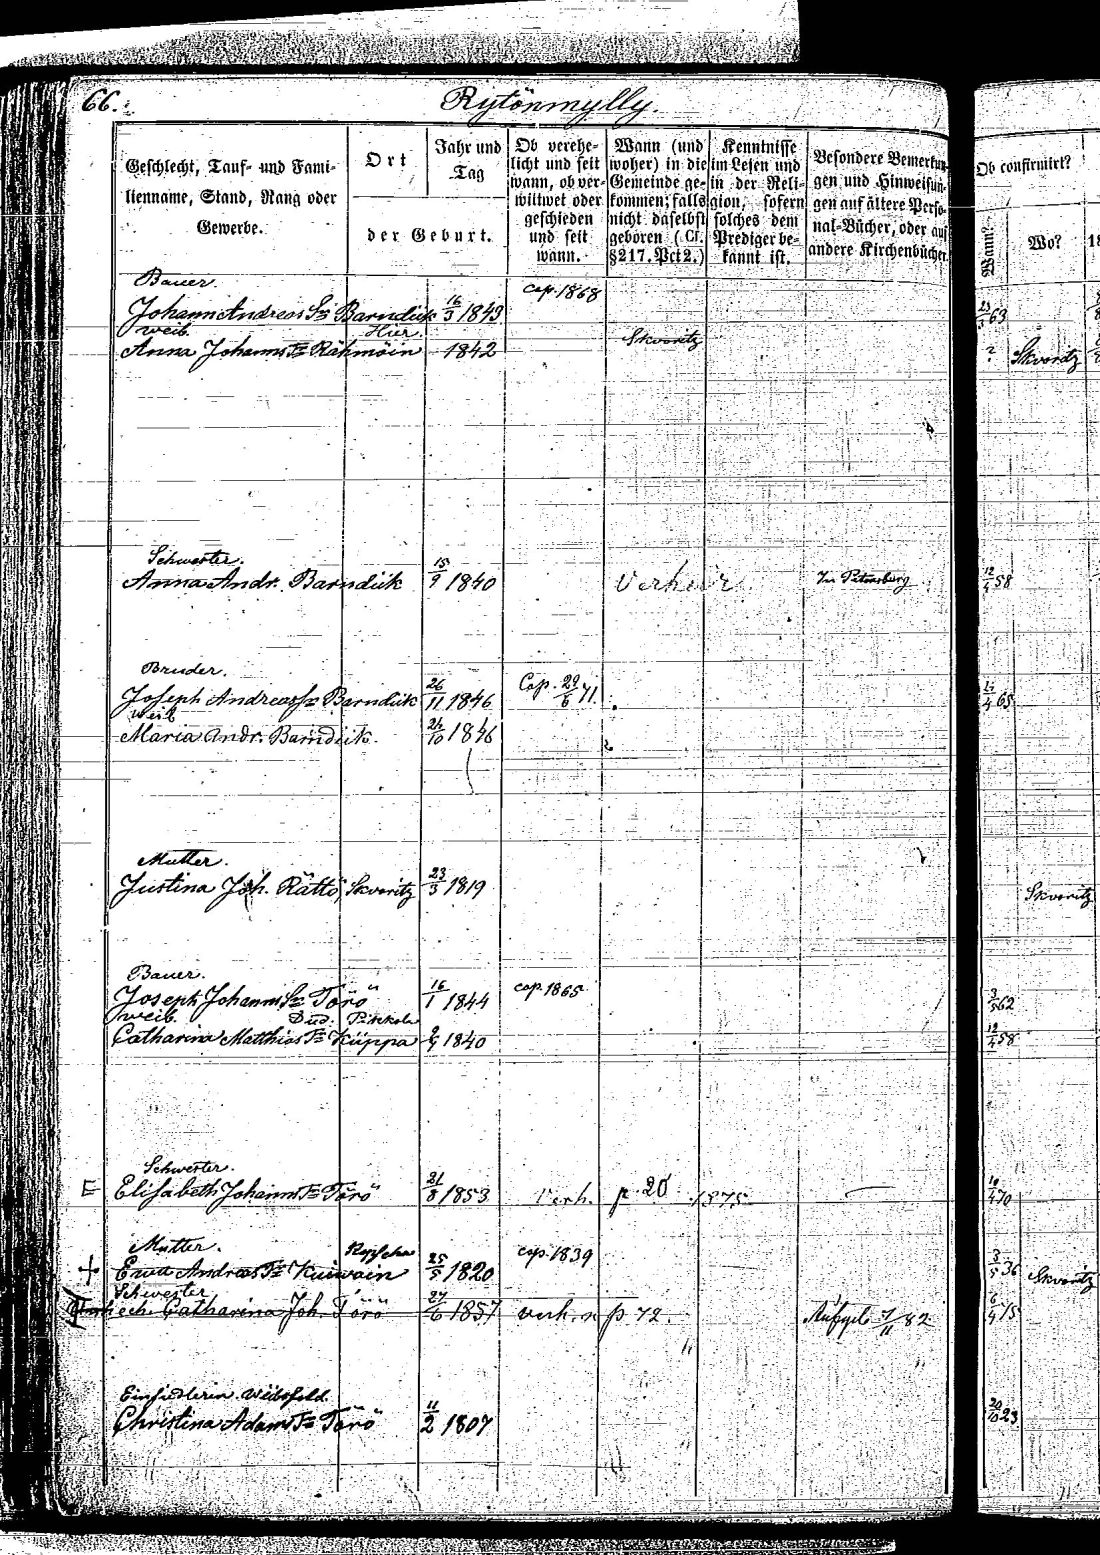 66.
Rytönmylly.
Geschlecht, Tauf- und Fami-
lienname, Stand, Rang oder
Gewerbe.
Ort
Jahr und
Tag
der Geburt.
Ob verehe-
licht und seit
wann, ob ver-
wittwet oder
geschieden
und seit
wann.
Wann (und
woher) in die
Gemeinde ge-
kommen; falls
nicht daselbst
geboren (Cf.
§217. Pct2.)
Kenntnisse
im Lesen und
in der Reli-
gion, sofern
solches dem
Prediger be-
kannt ist.
Besondere Bemerkun-
gen und Hinweisun-
gen auf ältere Perso-
nal-Bücher, oder auf
andere Kirchenbücher
Ob confirmirt?
Wann?
Wo?
18
Bauer. cop. 1868
Johann Andreas Sn Barndük 16/3 1843 23/3 63
Weib Hier. Skvoritz
Anna Johanns Tr Rähmöin 1842 ? Skvoritz
Schwester.
Anna Andr. Barndük 15/9 1840 Verheir. In Petersburg 12/4 58
Bruder.
Joseph Andreas Sn Barndük 26/11 1846 Cop. 29/6 71. /4 65
Weib
Maria Andr. Barndük 24/10 1846
Mutter.
Justina Joh. Rättö, Skvoritz 23/3 1819 Skvoritz
Bauer.
Joseph Johanns Sn Törö 16/1 1844 cop. 1865 3/5 62
Weib Dud. Pikkola
Catharina Matthias Tr Küppa 1840 12/4 58
Schwester.
E Elisabeth Johanns Tr Törö 21/8 1853 Verh. p 20 1875 10/4 70
Mutter. Ropscha cop. 1839
+ Ewa Andreas Tr Kuiwain 25/5 1820 3/5 36 Skvoritz
Schwester
Catharina Joh. Törö 27/6 1857 verh. n p 72. Aufgeb 7/11 82 6/4 75
Einsiedlerin
Christina Adams Tr Törö 11/2 1807 20/10 23